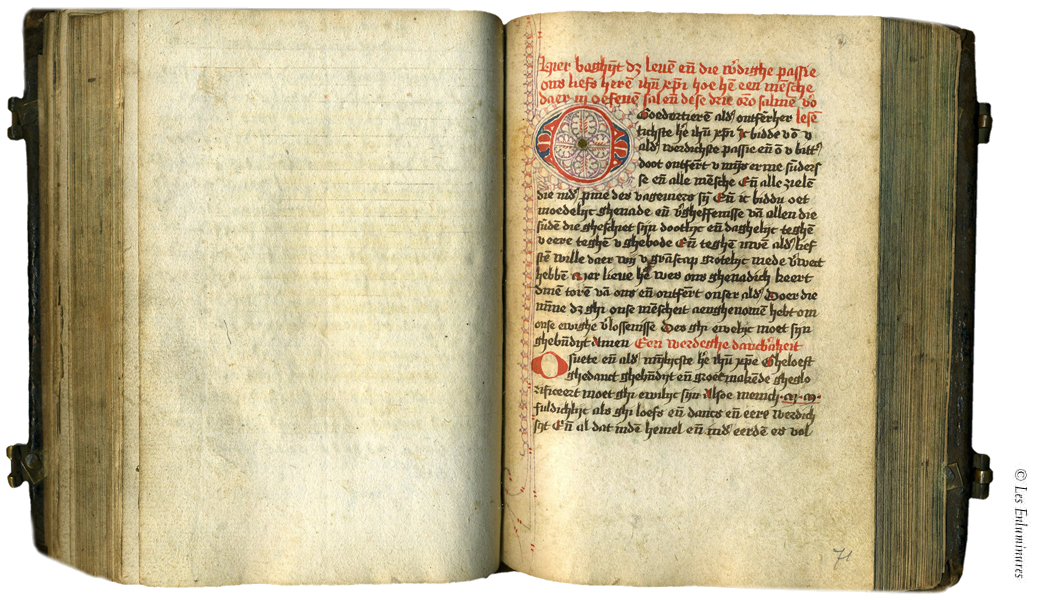 Hier beghīt dz leuē en̄ die w̄dighe passie
ons liefs herē ihū xp̄i hoe hē een mēsche
daer in oefenē sal en̄ dese drie
Goedertierē ald' ontfērher lesē
tichste h'e ihū xp̄i ic bidde v
ald' werdichste passie en̄ v bitt'
doot ontfērt v mijs erme sūders
se en̄ alle mēsche En̄ alle zielē
die ind' pine des vageuiers sij En̄ ic bidde oet
moedelijc ghenade en̄ v'gheffenisse vā allen die
sūdē die gheschiet sijn dootlijc en̄ daghelijc teghē
v eere teghē v ghebode En̄ teghē uwē ald' lief
stē wille daer wij v grāscap grotelijc mede v'
hebbē Mer lieue h'e wes ons ghenadich keert
dinē torē vā ons en̄ ontfērt onser ald' Doer die
mīne dz ghi onse mēscheit aenghenomē hebt om
onse ewighe v'lossenisse Des ghi ewelijc moet sijn
ghebn̄dijt Amen Een werdeghe dancb'heit
O suete en̄ ald' mīlijcste h'e ihū xp̄e Gheloeft
ghedanct ghebn̄dijt en̄ groet makēde gheglo
rificeert moet ghi ewilijc sijn Alsoe menich
fuldichlijc als ghi loefs en̄ dancs en̄ eere werdich
sijt En̄ al dat indē hemel en̄ ind' eerdē es vol
71
© Les Enluminures